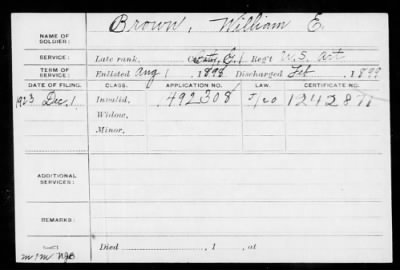 Brown, William E.
NAME OF SOLDIER:
SERVICE: Late rank, Co. Baty E, 1 Reg't U.S. Art
TERM OF SERVICE: Enlisted Aug 1, 1898 Discharged Feb, 1899
DATE OF FILING. CLASS. APPLICATION NO. CERTIFICATE NO.
1923 Dec. 1 Invalid, 492308 1242871
Widow,
Minor,
ADDITIONAL SERVICES:
REMARKS:
Died , 1 , at